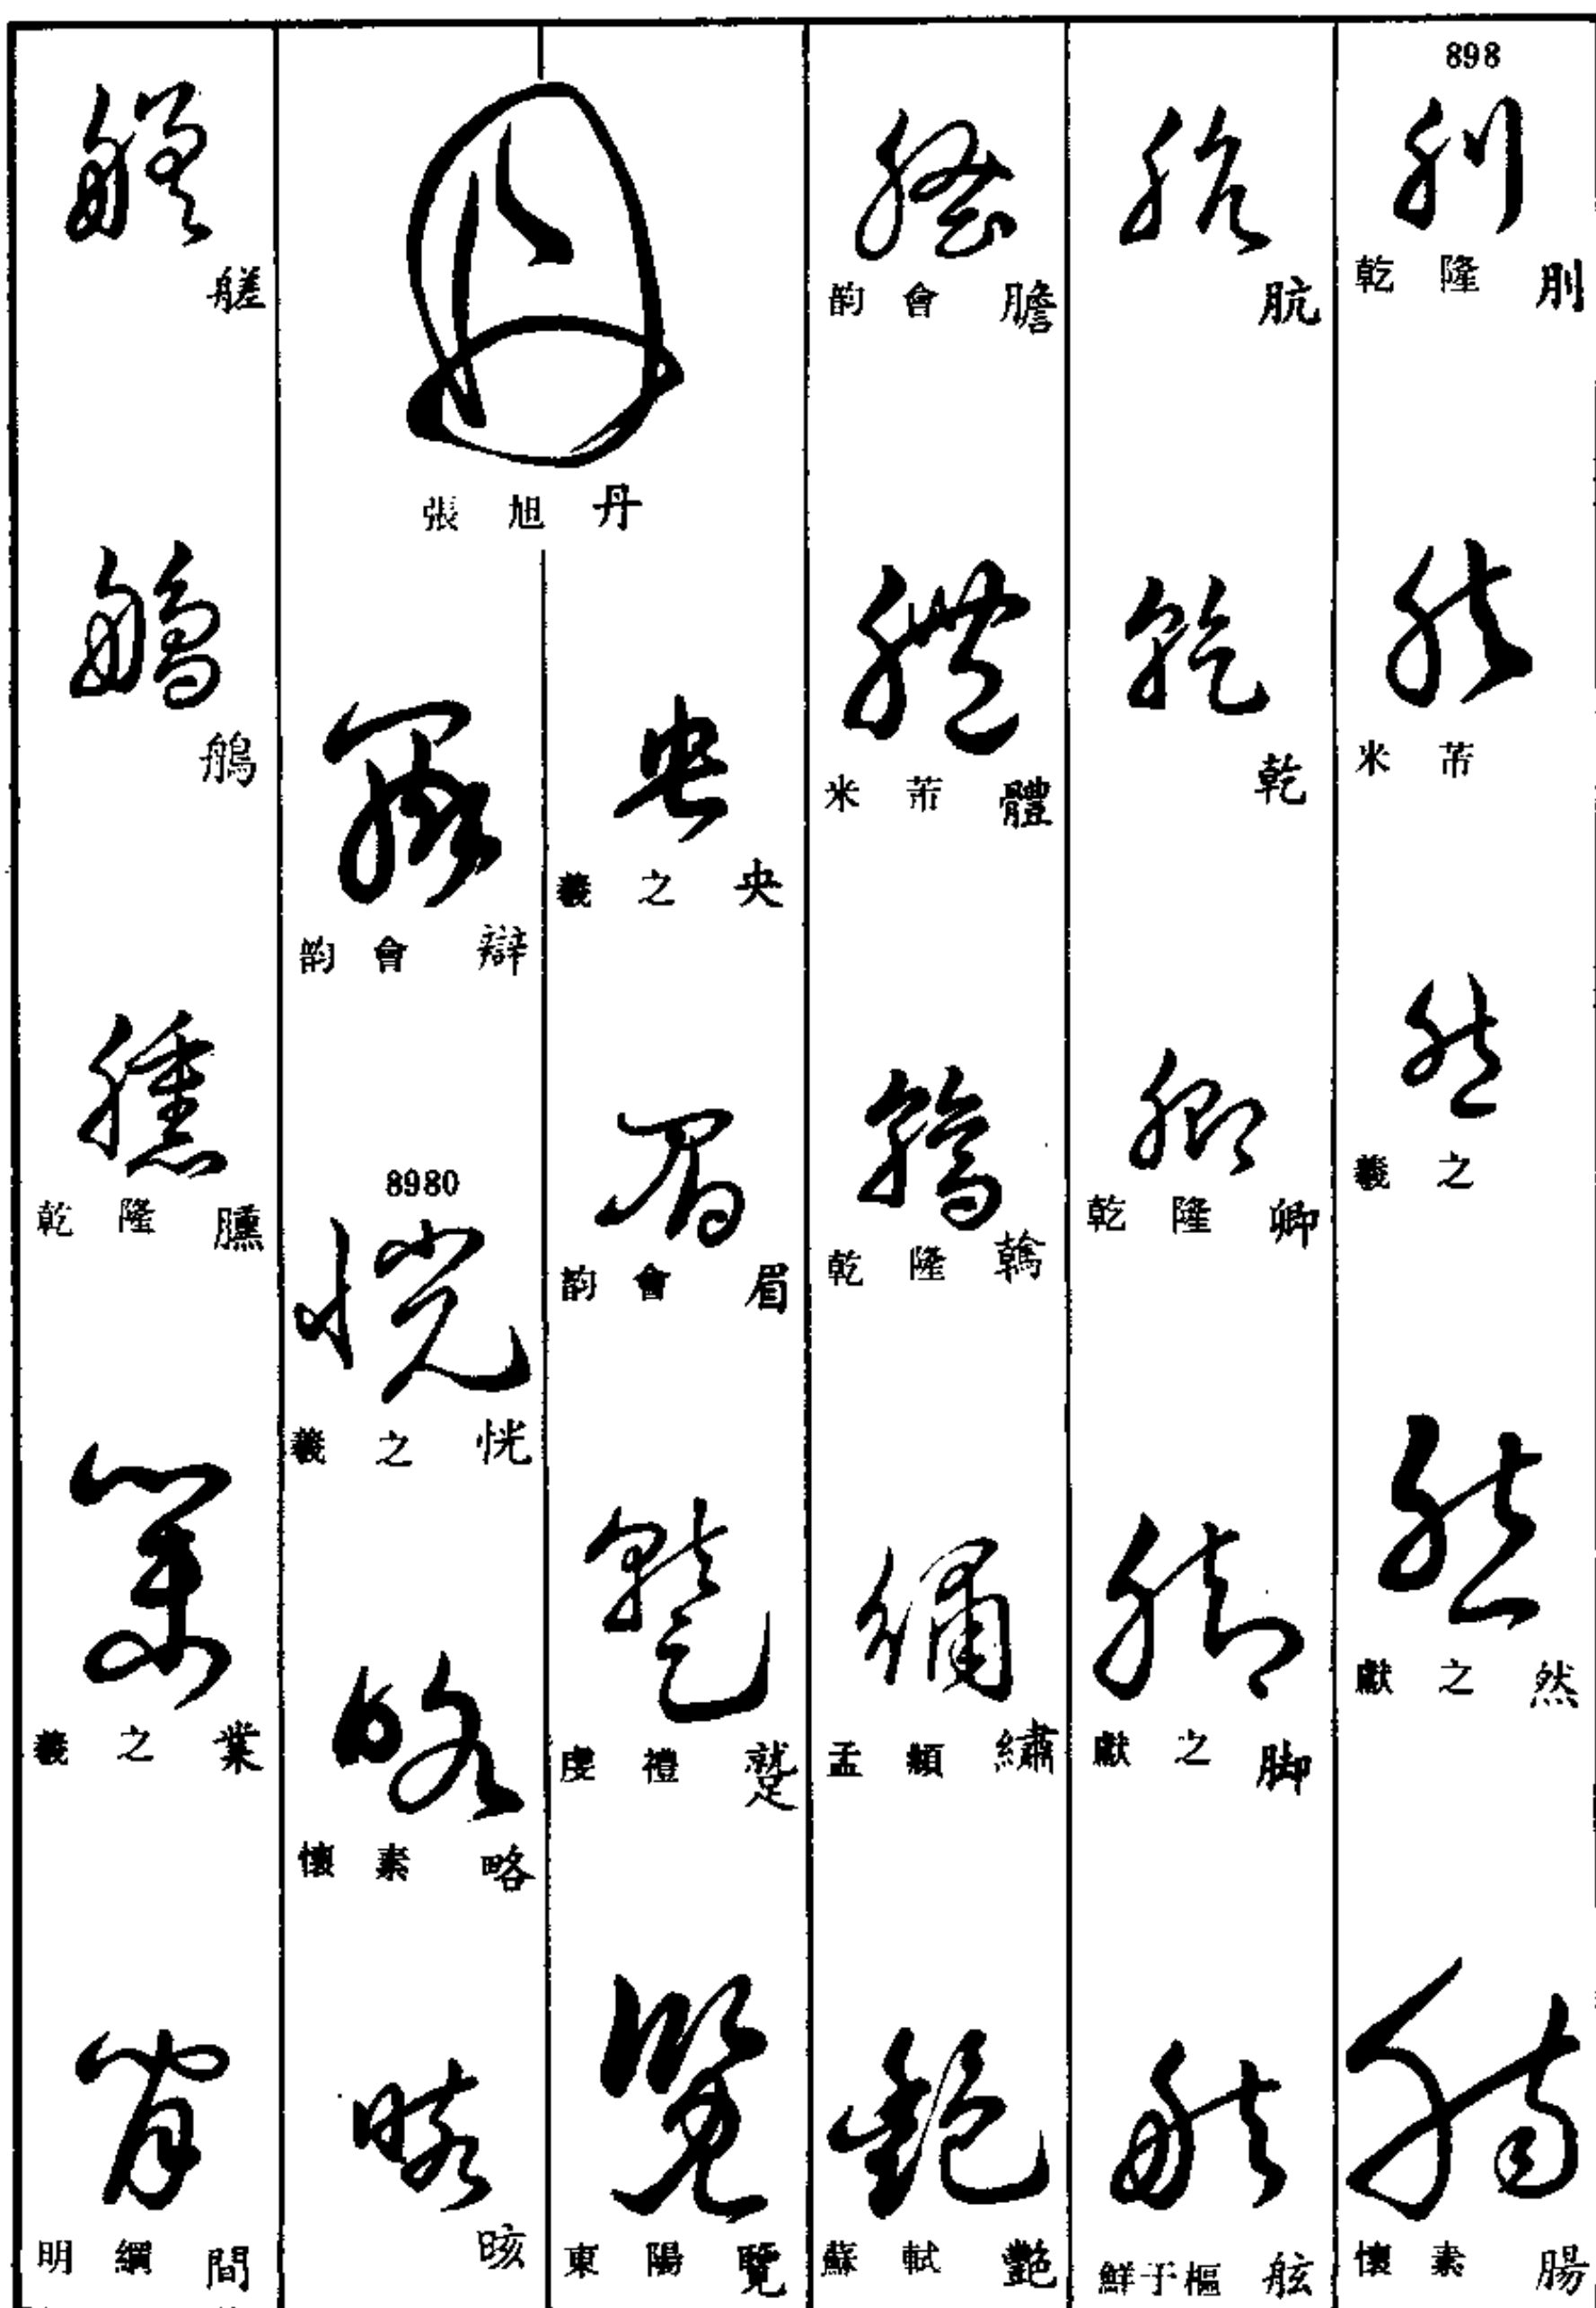 898
乾隆 刖
米芾
羲之
獻之 然
懷素 腸
肮
乾
乾隆 卿
獻之 脚
鮮于樞 舷
韵會 膽
米芾 體
乾隆 鶾
孟頫 繡
蘇軾 艷
張旭 丹
羲之 央
韵會 眉
虔禮 蹵
東陽 覽
韵會 辯
8980
羲之 恍
懷素 略
晐
艖
乾隆 臐
羲之 業
明綱 間